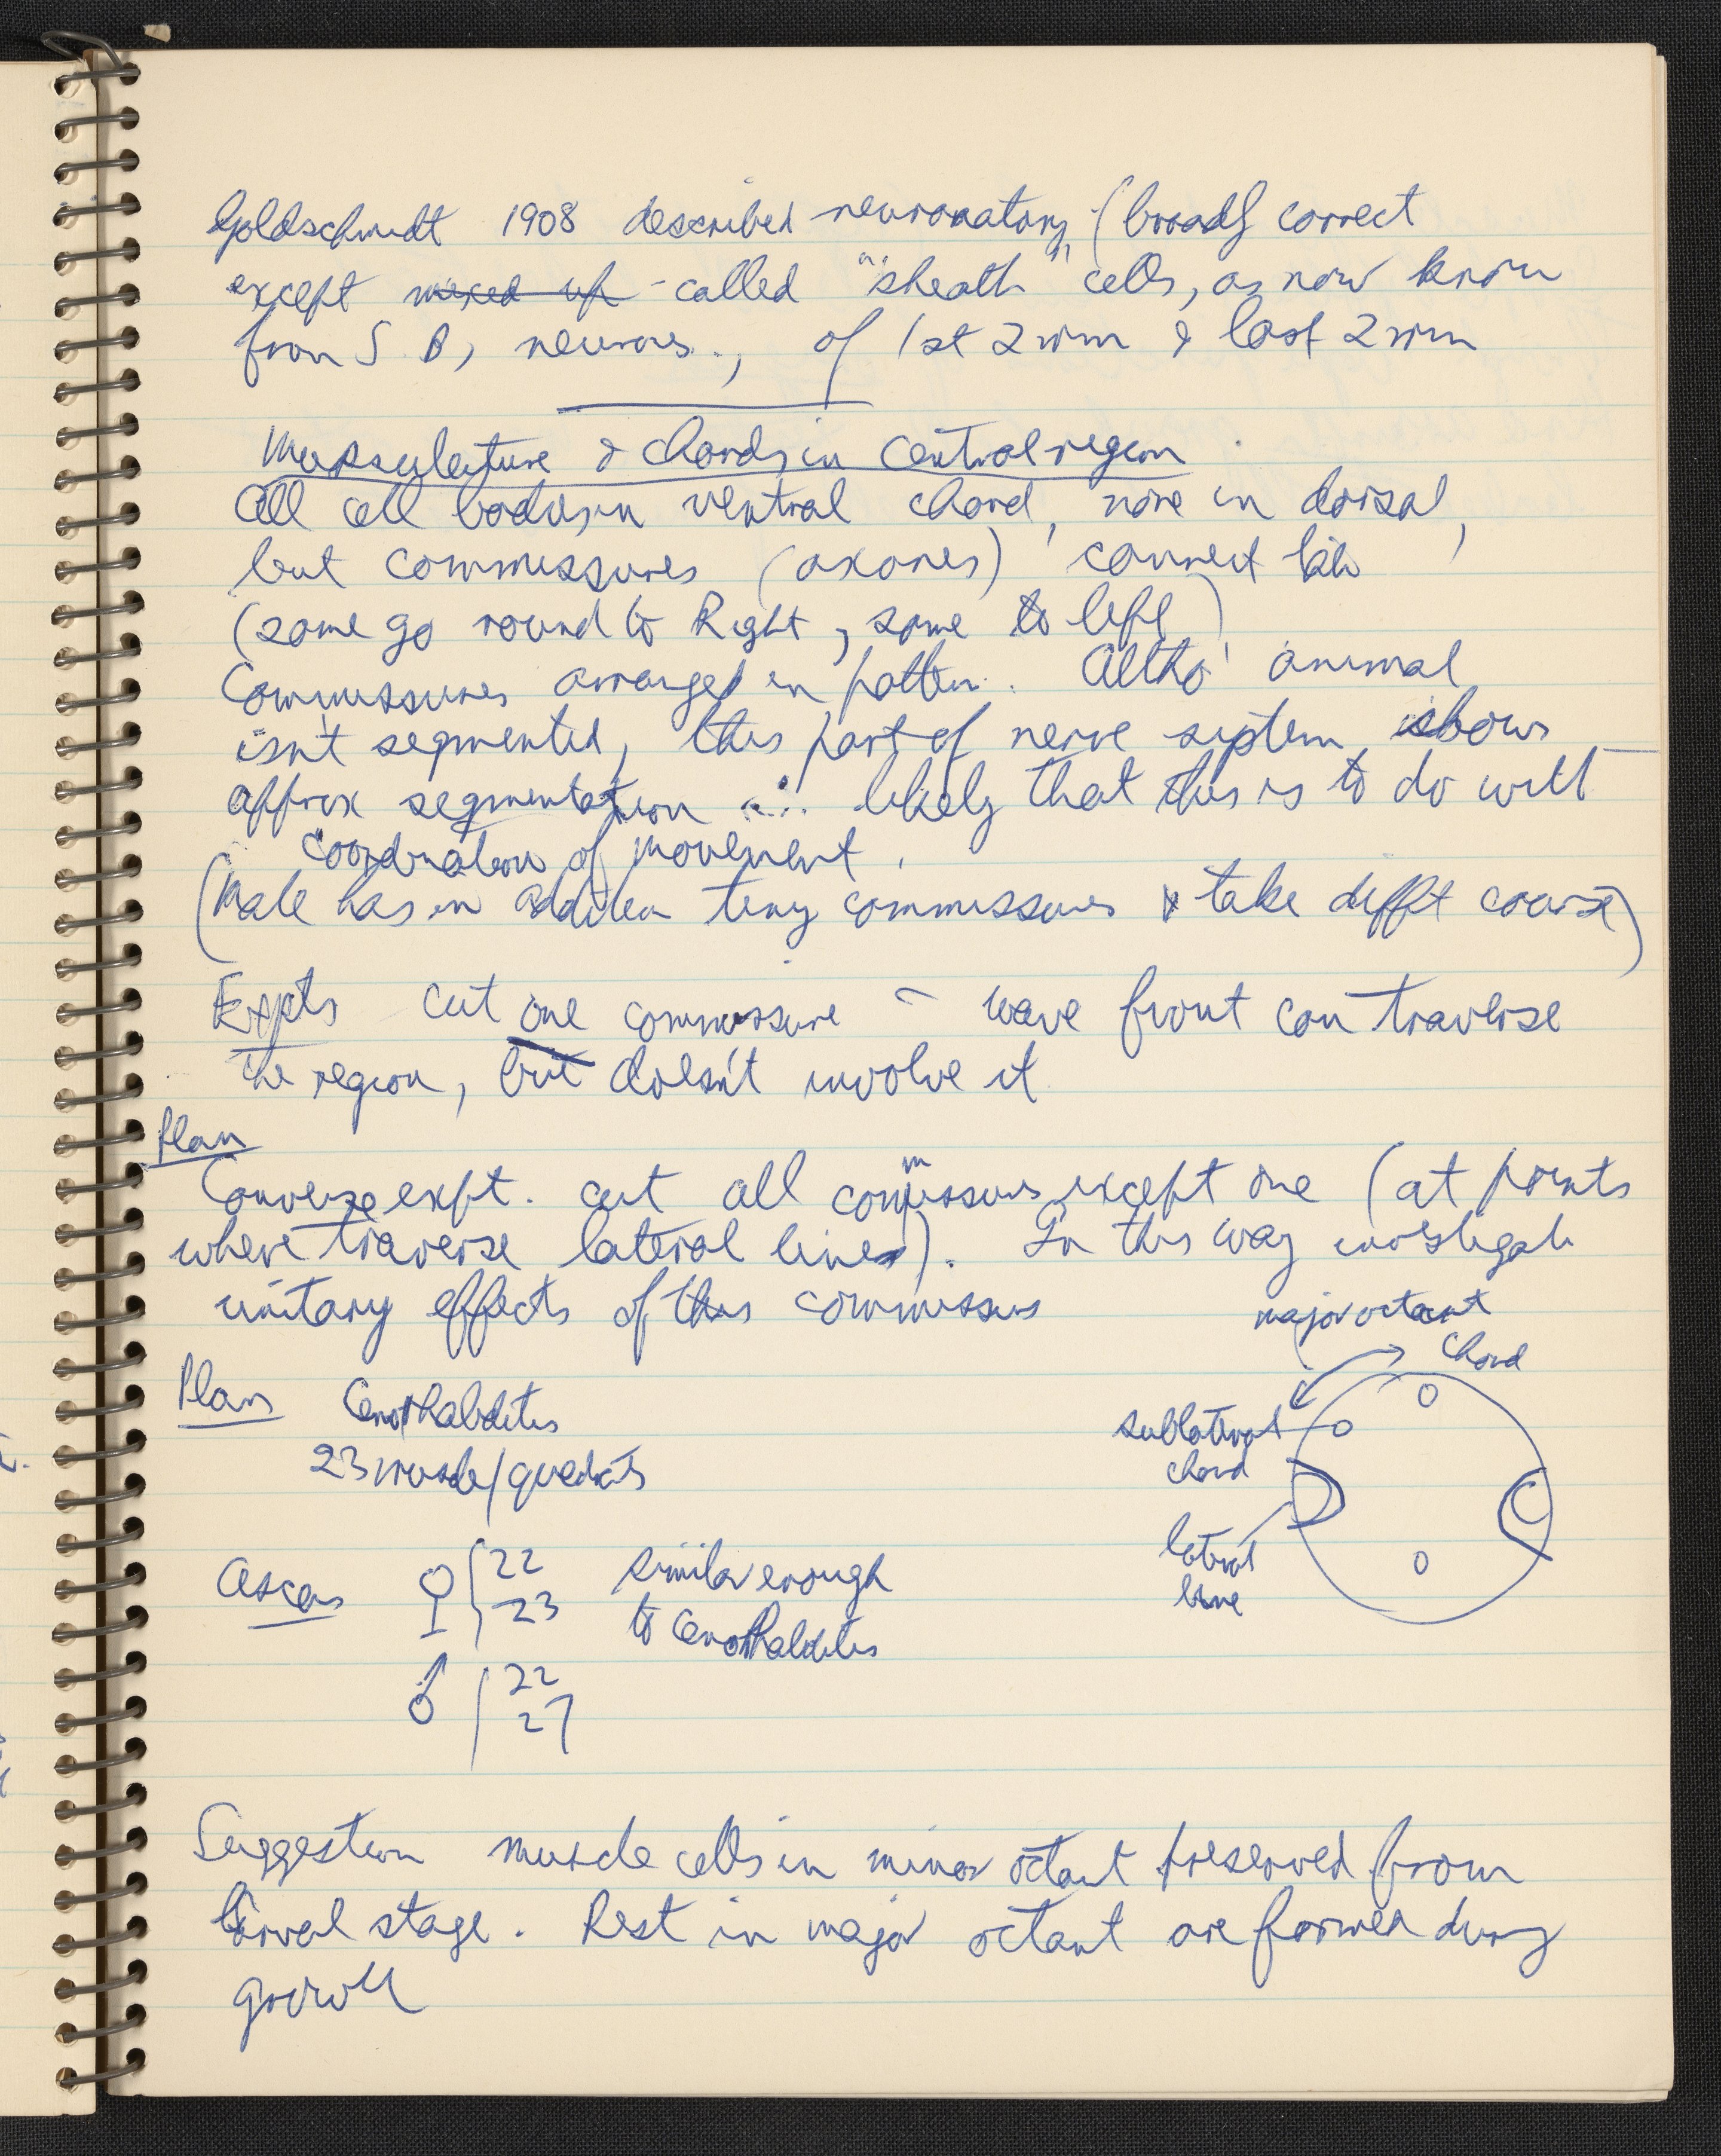 Goldschmidt 1908 described neuroanatomy (broadly correct
except mixed up - called "sheath" cells, as now known
from S B, neurones., of 1st 2 mm & last 2 mm
Musculature & chords in central region
All cell bodies in ventral chord, none in dorsal,
but commissures (axones) connect
(some go round to Right, some to left)
Commissures arranged in pattern. Altho' animal
isn't segmented, this part of nerve system shows
approx segmentation ∴ likely that this is to do with
coordination of movement.
(Male has in addition tiny commissures take diff't course)
Expts cut one commissure - wave front can traverse
the region, but doesn't involve it
Plan
Converse expt. cut all commissures except one (at points
where traverse lateral lines). In this way investigate
unitary effects of this commissures
major octant
chord
Plan Cenorhabditis
sublateral
chord
23 muscle/quadrats
lateral
line
Ascaris ♀ 22 similar enough
23 to Cenorhabditis
♂ 22
27
Suggestion muscle cells in minor octant preserved from
larval stage. Rest in major octant are formed during
growth